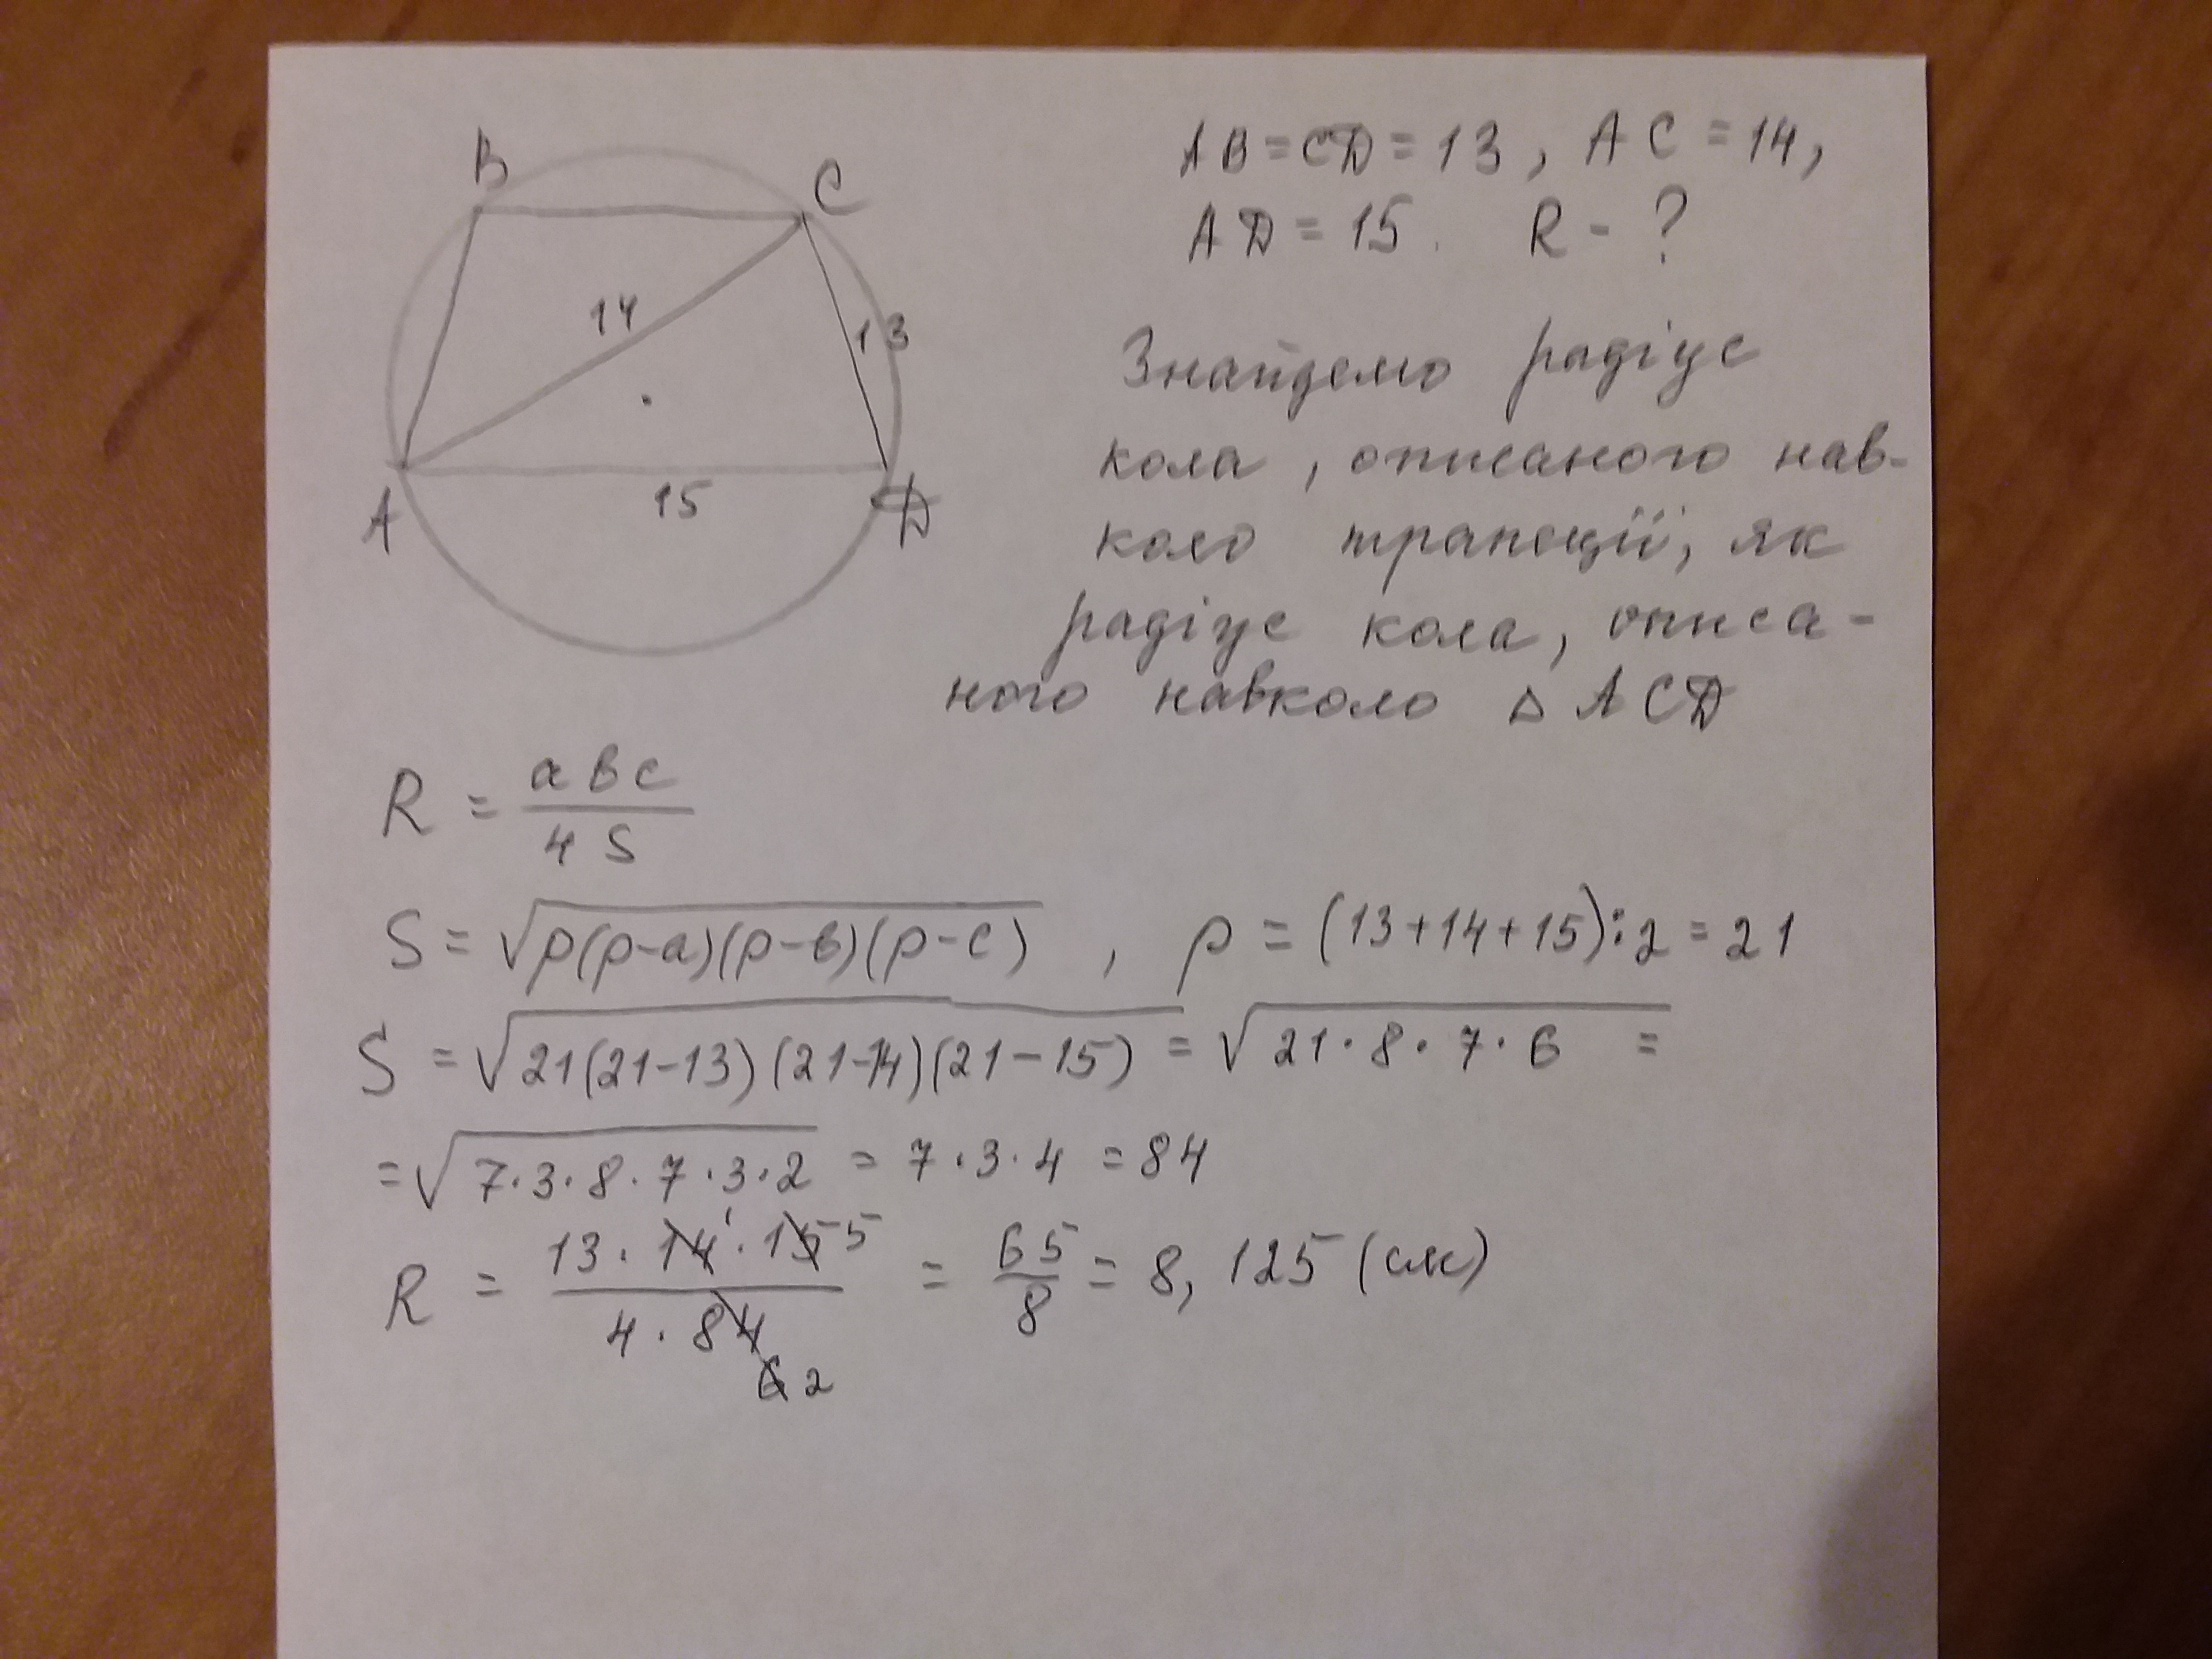 B
C
14
13
15
A
D
AB = CD = 13, AC = 14,
AD = 15. R - ?
Знайдемо радіус
кола, описаного нав-
коло трапеції, як
радіус кола, описа-
ного навколо △ ACD
R = abc / 4S
S = √p(p-a)(p-b)(p-c) , p = (13+14+15):2 = 21
S = √21(21-13)(21-14)(21-15) = √21·8·7·6 =
= √7·3·8·7·3·2 = 7·3·4 = 84
R = 13·14 1·15 5 / 4·84 6 2 = 65/8 = 8,125 (см)